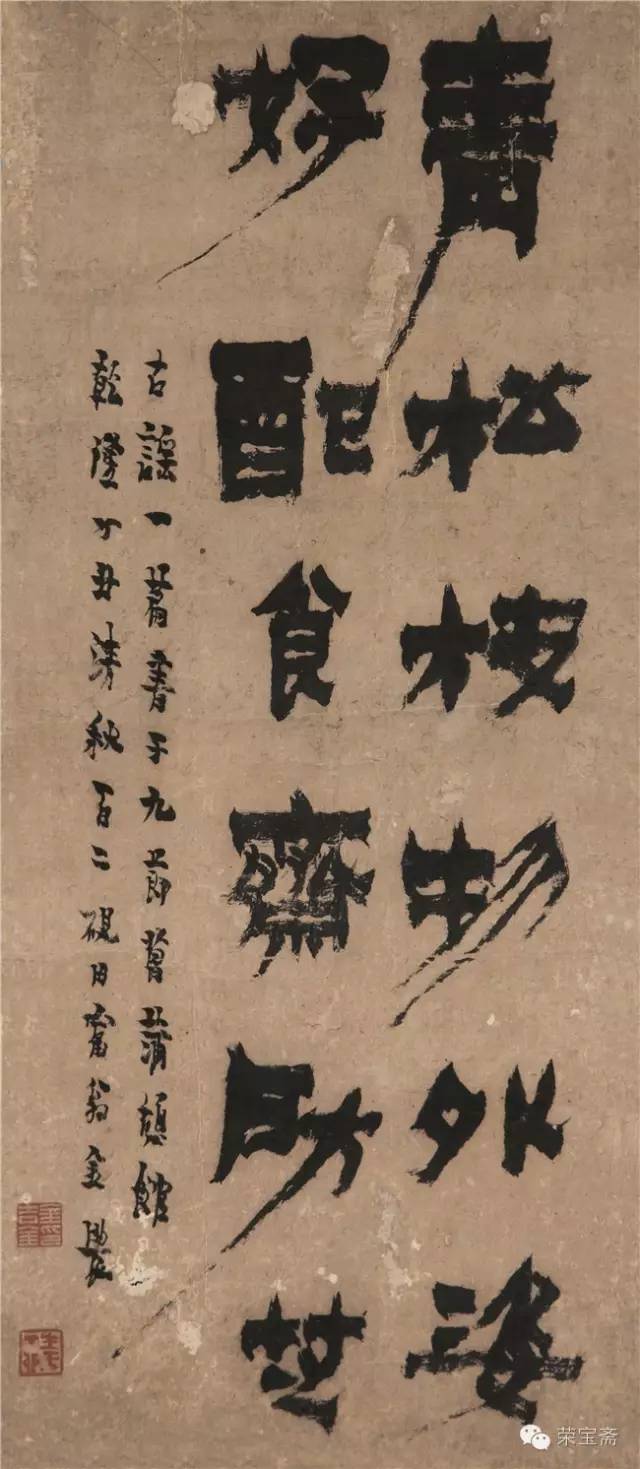 青松枝物外姿
好配食齋房芝
古謡一首書于九節菖蒲憩館
乾隆丁丑清秋百二硯田富翁金農
荣宝斋